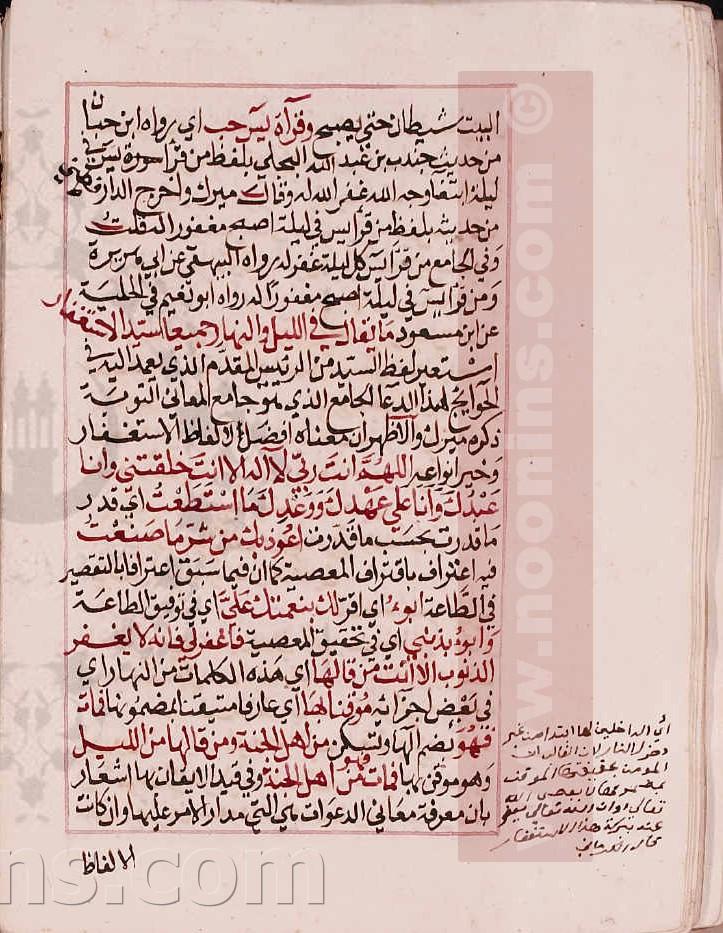 البيت شيطان حتى يصبح وقرآة يٓس حب اي رواه ابن حبان
من حديث جندب بن عبد الله البجلي بلفظ من قرأ سورة يس في
ليلة ابتغا وجه الله غفر الله له وقال ميرك واخرج الدارقطني
من حديثه بلفظ من قرأ يس في ليلة اصبح مغفورا له قلت
وفي الجامع من قرأ يس كل ليلة غفر له رواه البيهقي عن ابي هريرة
ومن قرأ يس في ليلة اصبح مغفورا له رواه ابو نعيم في الحلية
عن ابن مسعود ما يقال في الليل والنهار جميعا سيد الاستغفار
استعير لفظ السيد من الرئيس المقدم الذي يعمد اليه في
الحوايج لهذا الدعا الجامع الذي هو جامع المعاني التوبة
ذكره ميرك والاظهر ان معناه افضل الالفاظ الاستغفار
وخير انواعه اللهم انت ربي لآ اله الا انت خلقتني وانا
عبدك وانا على عهدك ووعدك ما استطعت اي قدر
ما قدرت بحسب ما قدرت اعوذ بك من شر ما صنعت
فيه اعتراف باقتراف المعصية كما ان فيما سبق اعترافا بالتقصير
في الطاعة ابوء اي اقر لك بنعمتك علي اي في توفيق الطاعة
وابوء بذنبي اي في تحقيق المعصية فاغفر لي فانه لا يغفر
الذنوب الا انت من قالها اي هذه الكلمات من النهار اي
في بعض اجزائه موقنا بها اي عارفا متيقنا بمضمونها فمات
فهو بضم الها وتسكن من اهل الجنة ومن قالها من الليل
وهو موقن بها فمات فهو من اهل الجنة وفي قيد الايقان بها اشعار
بان معرفة معاني الدعوات هي التي مدار الامر عليها وان كانت
الالفاظ
اي الداخلين لها ابتداء من غير
دخول النار لان الغالب ان
المؤمن
تعالى
هذا الاستغفار
© www.noonins.com
ns.com